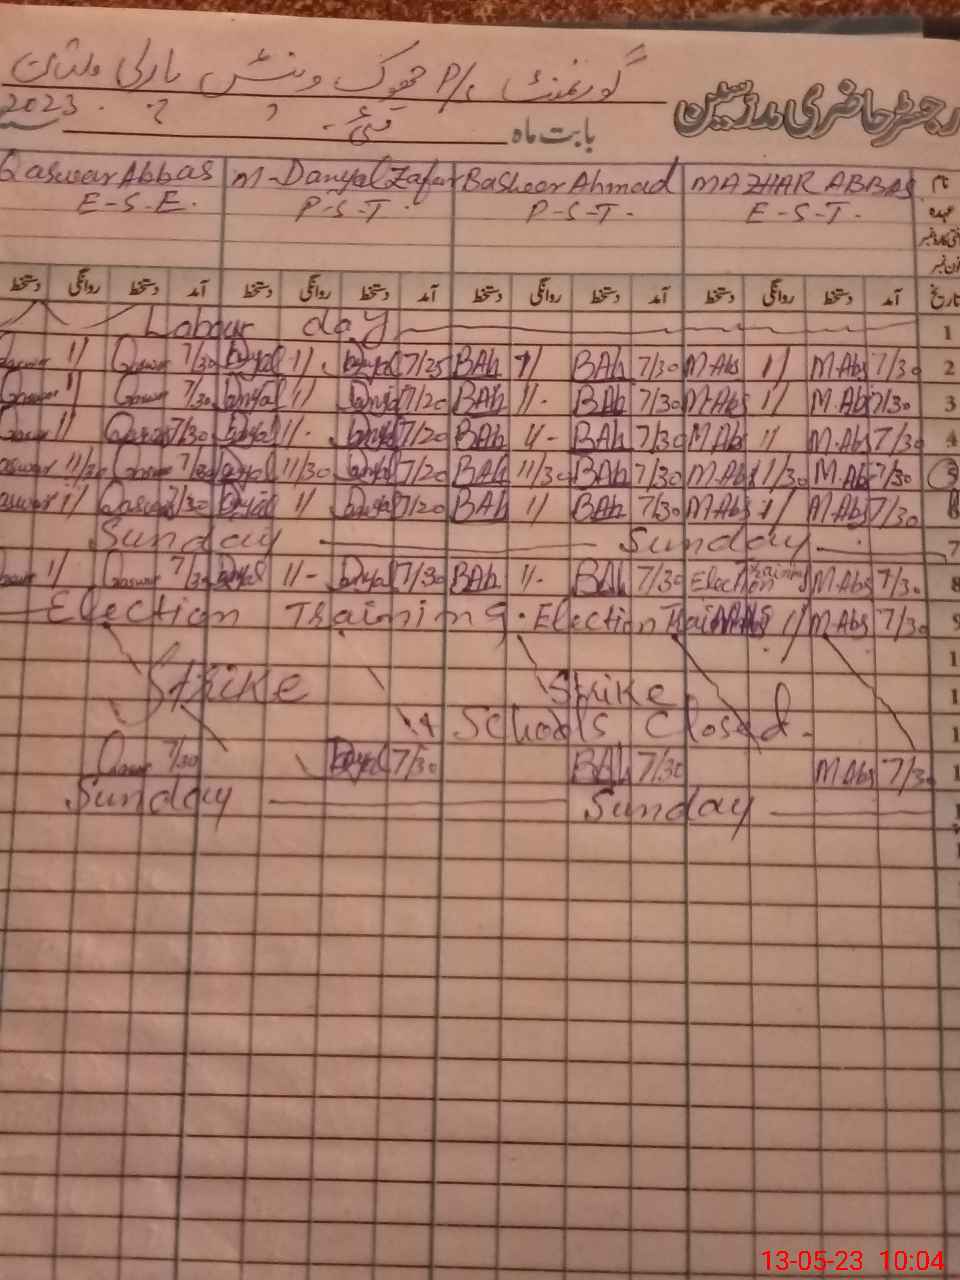 رجسٹر حاضری مدرسین
گورنمنٹ P/S جھوک وینس مارلی ملتان
بابت ماہ مئی 2023
نام MAZHAR ABBAS Basheer Ahmad M-Danyal Zafar Qaswar Abbas
عہدہ E-S-T- P-S-T- P-S-T- E-S-E-
تاریخ آمد دستخط روانگی دستخط آمد دستخط روانگی دستخط آمد دستخط روانگی دستخط آمد دستخط روانگی دستخط
1 Labour day
2 7/30 M.Abs 1/ M.Abs 7/30 BAh 1/ BAh 7/25 Danyal 1/ Danyal 7/30 Qaswar 1/ Qaswar
3 7/30 M.Abs 1/ M.Abs 7/30 BAh 1/- BAh 7/20 Danyal 1/ Danyal 7/30 Qaswar 1/ Qaswar
4 7/30 M.Abs 1/ M.Abs 7/30 BAh 1/- BAh 7/20 Danyal 1/- Danyal 7/30 Qaswar 1/ Qaswar
5 7/30 M.Abs 11/30 M.Abs 7/30 BAh 11/30 BAh 7/20 Danyal 11/30 Danyal 7/30 Qaswar 11/30 Qaswar
6 7/30 M.Abs 1/ M.Abs 7/30 BAh 1/ BAh 7/20 Danyal 1/ Danyal 7/30 Qaswar 1/ Qaswar
7 Sunday Sunday
8 7/30 M.Abs Election Training 7/30 BAh 1/- BAh 7/30 Danyal 1/- Danyal 7/30 Qaswar 1/ Qaswar
9 7/30 M.Abs 1/ Election Training Election Training
1
1 Strike Strike
1 Schools Closed
1 7/30 M.Abs 7/30 BAh 7/30 Danyal 7/30 Qaswar
1 Sunday Sunday
13-05-23 10:04